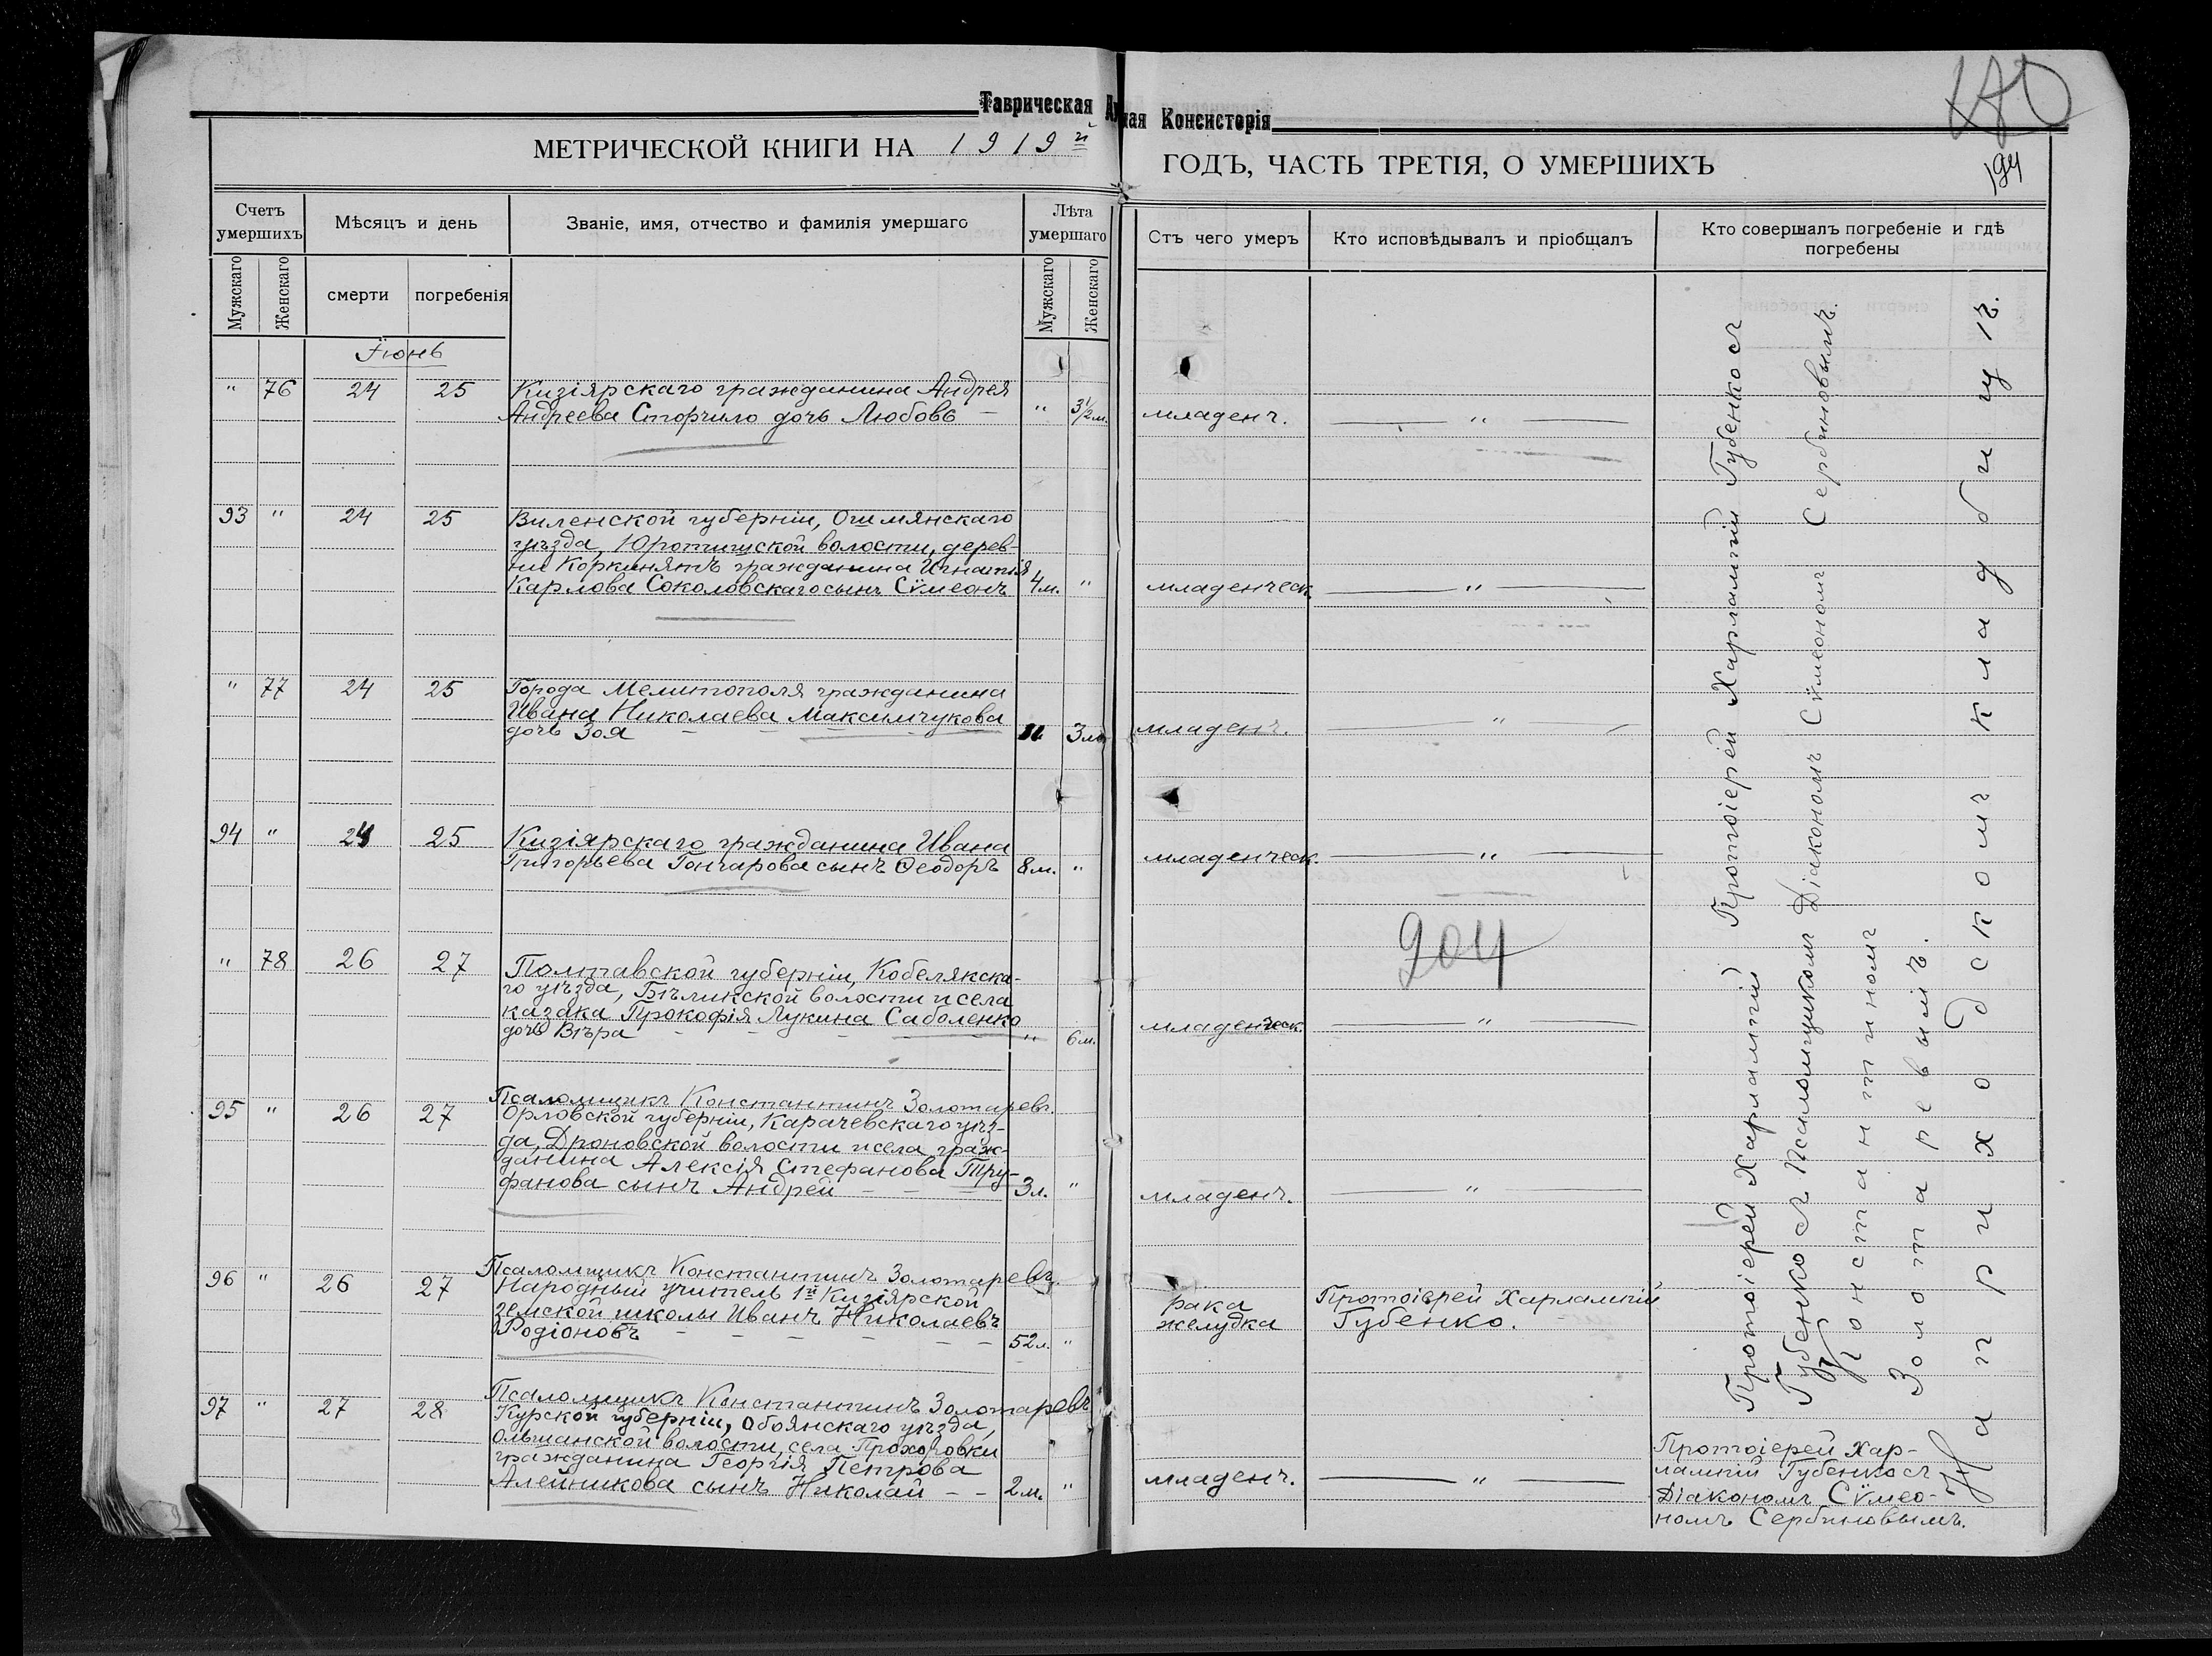 Таврическая Ду
ная Консисторія
180
МЕТРИЧЕСКОЙ КНИГИ НА 1919й
ГОДЪ, ЧАСТЬ ТРЕТІЯ, О УМЕРШИХЪ
194
Счетъ умершихъ
Мѣсяцъ и день
Званіе, имя, отчество и фамилія умершаго
Лѣта умершаго
Стъ чего умеръ
Кто исповѣдывалъ и пріобщалъ
Кто совершалъ погребеніе и гдѣ погребены
Мужскаго
Женскаго
смерти
погребенія
Мужскаго
Женскаго
Іюнь
" 76 24 25 Кизіярскаго гражданина Андрея
Андреева Сторчило дочь Любовь — " 3½ м. младенч. — " —
93 " 24 25 Виленской губерніи, Ошмянскаго
уѣзда, Юротишской волости, дерев-
ни Коркинятъ гражданина Игнатія
Карлова Соколовскаго сынъ Сѵмеонъ 4 м. " младенческ. — " —
" 77 24 25 Города Мелитополя гражданина
Ивана Николаева Максимчукова
дочь Зоя " 3 м. младенч. — " —
94 " 24 25 Кизіярскаго гражданина Ивана
Григорьева Гончарова сынъ Ѳеодоръ 8 м. " младенческ. — " —
204
" 78 26 27 Полтавской губерніи, Кобелякска-
го уѣзда, Бѣликской волости и села
казака Прокофія Лукина Саболенко
дочь Вѣра " 6 м. младенческ. — " —
Псаломщикъ Константинъ Золотаревъ.
95 " 26 27 Орловской губерніи, Карачевскаго уѣз-
да, Дроновской волости и села граж-
данина Алексія Стефанова Тру-
фанова сынъ Андрей — — — 3 л. " младенч. — " —
Псаломщикъ Константинъ Золотаревъ.
96 " 26 27 Народный учитель 1й Кизіярской
земской школы Иванъ Николаевъ
Родіоновъ — — — 52 л. "
рака
желудка
Протоіерей Харлампій
Губенко.
Псаломщикъ Константинъ Золотаревъ
97 " 27 28 Курской губерніи, Обоянскаго уѣзда,
Ольшанской волости, села Прохоровки
гражданина Георгія Петрова
Алейникова сынъ Николай — — 2 м. " младенч. — " —
Протоіерей Харлампій) Протоіерей Харлампій Губенко съ
Губенко съ Псаломщикомъ Діакономъ Сѵмеономъ Сербиновымъ.
Константиномъ
Золотаревымъ.
На приходскомъ кладбищѣ.
Протоіерей Хар-
лампій Губенко съ
Діакономъ Сѵмео-
номъ Сербиновымъ.